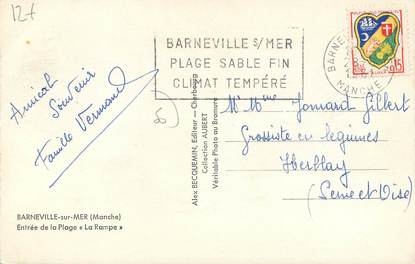 12+
BARNEVILLE S/ MER
PLAGE SABLE FIN
CLIMAT TEMPÉRÉ
BARNE
MANCHE
0,15
Amical
Souvenir
Famille Vermand
Mr Mme Jomard Gilbert
Grossiste en légumes
Herblay
(Seine et Oise)
Alex BECQUEMIN, Editeur — Cherbourg
Collection AUBERT
Véritable Photo au Bromure
BARNEVILLE-sur-MER (Manche)
Entrée de la Plage « La Rampe »